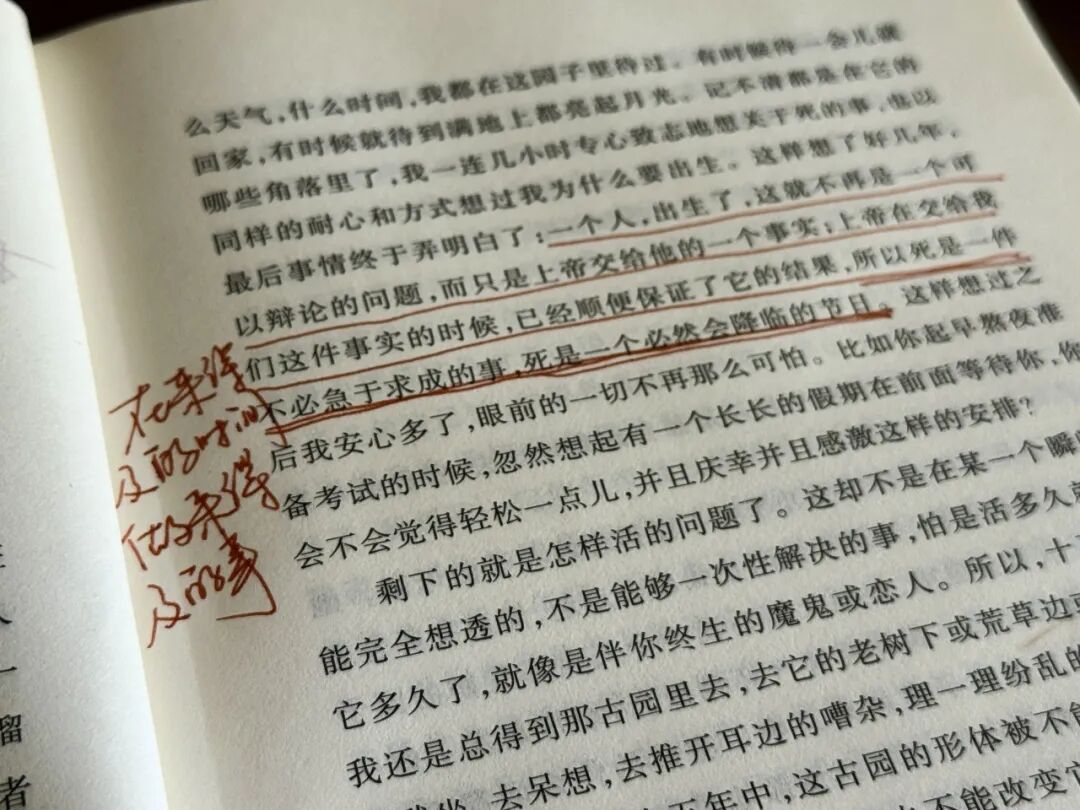 么天气，什么时间，我都在这园子里待过。有时候待一会儿就
回家，有时候就待到满地上都亮起月光。记不清都是在它的
哪些角落里了，我一连几小时专心致志地想关于死的事，也以
同样的耐心和方式想过我为什么要出生。这样想了好几年，
最后事情终于弄明白了：一个人，出生了，这就不再是一个可
以辩论的问题，而只是上帝交给他的一个事实；上帝在交给我
们这件事实的时候，已经顺便保证了它的结果，所以死是一件
不必急于求成的事，死是一个必然会降临的节日。这样想过之
后我安心多了，眼前的一切不再那么可怕。比如你起早熬夜准
备考试的时候，忽然想起有一个长长的假期在前面等待你，你
会不会觉得轻松一点儿，并且庆幸并且感激这样的安排？
剩下的就是怎样活的问题了。这却不是在某一个瞬
能完全想透的，不是能够一次性解决的事，怕是活多久就
它多久了，就像是伴你终生的魔鬼或恋人。所以，十
我还是总得到那古园里去，去它的老树下或荒草边或
去呆想，去推开耳边的嘈杂，理一理纷乱的
五年中，这古园的形体被不能
不能改变它
在来得
及的时间
做来得
及的事
一
溜
者